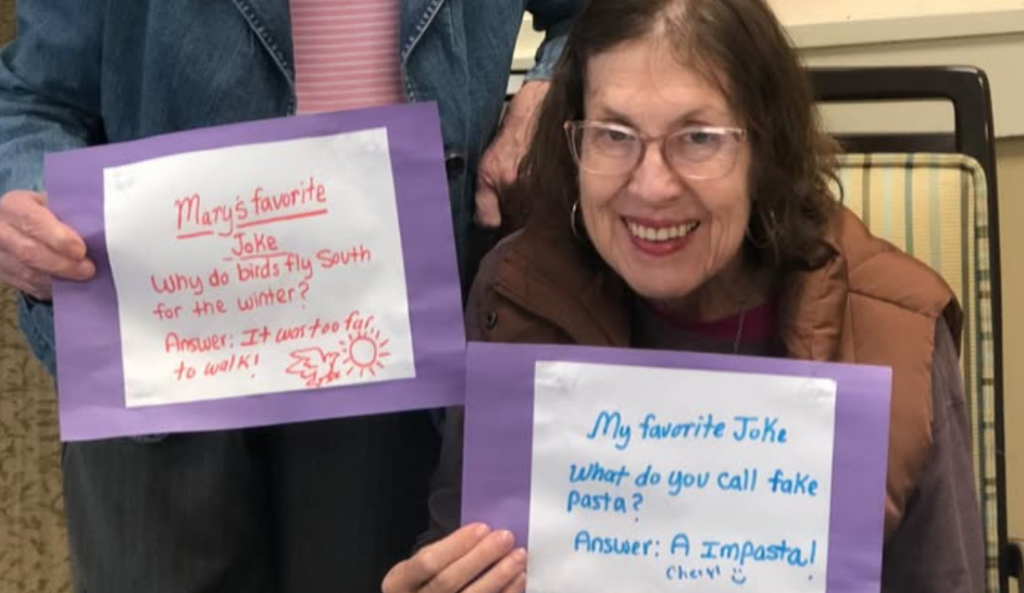 Mary's favorite
Joke
Why do birds fly South
for the winter?
Answer: It was too far
to walk!
My favorite Joke
What do you call fake
pasta?
Answer: A Impasta!
Cheryl